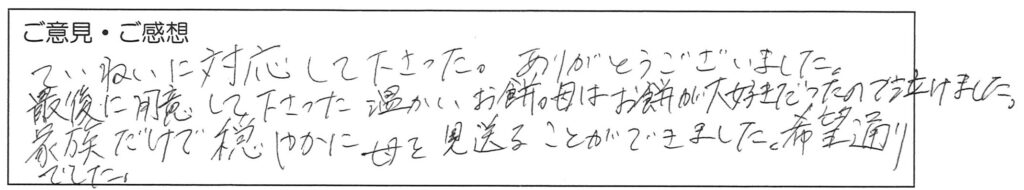 ご意見・ご感想
ていねいに対応して下さった。ありがとうございました。
最後に用意して下さった温かいお餅。母はお餅が大好きだったので泣けました。
家族だけで穏やかに母を見送ることができました。希望通り
でした。